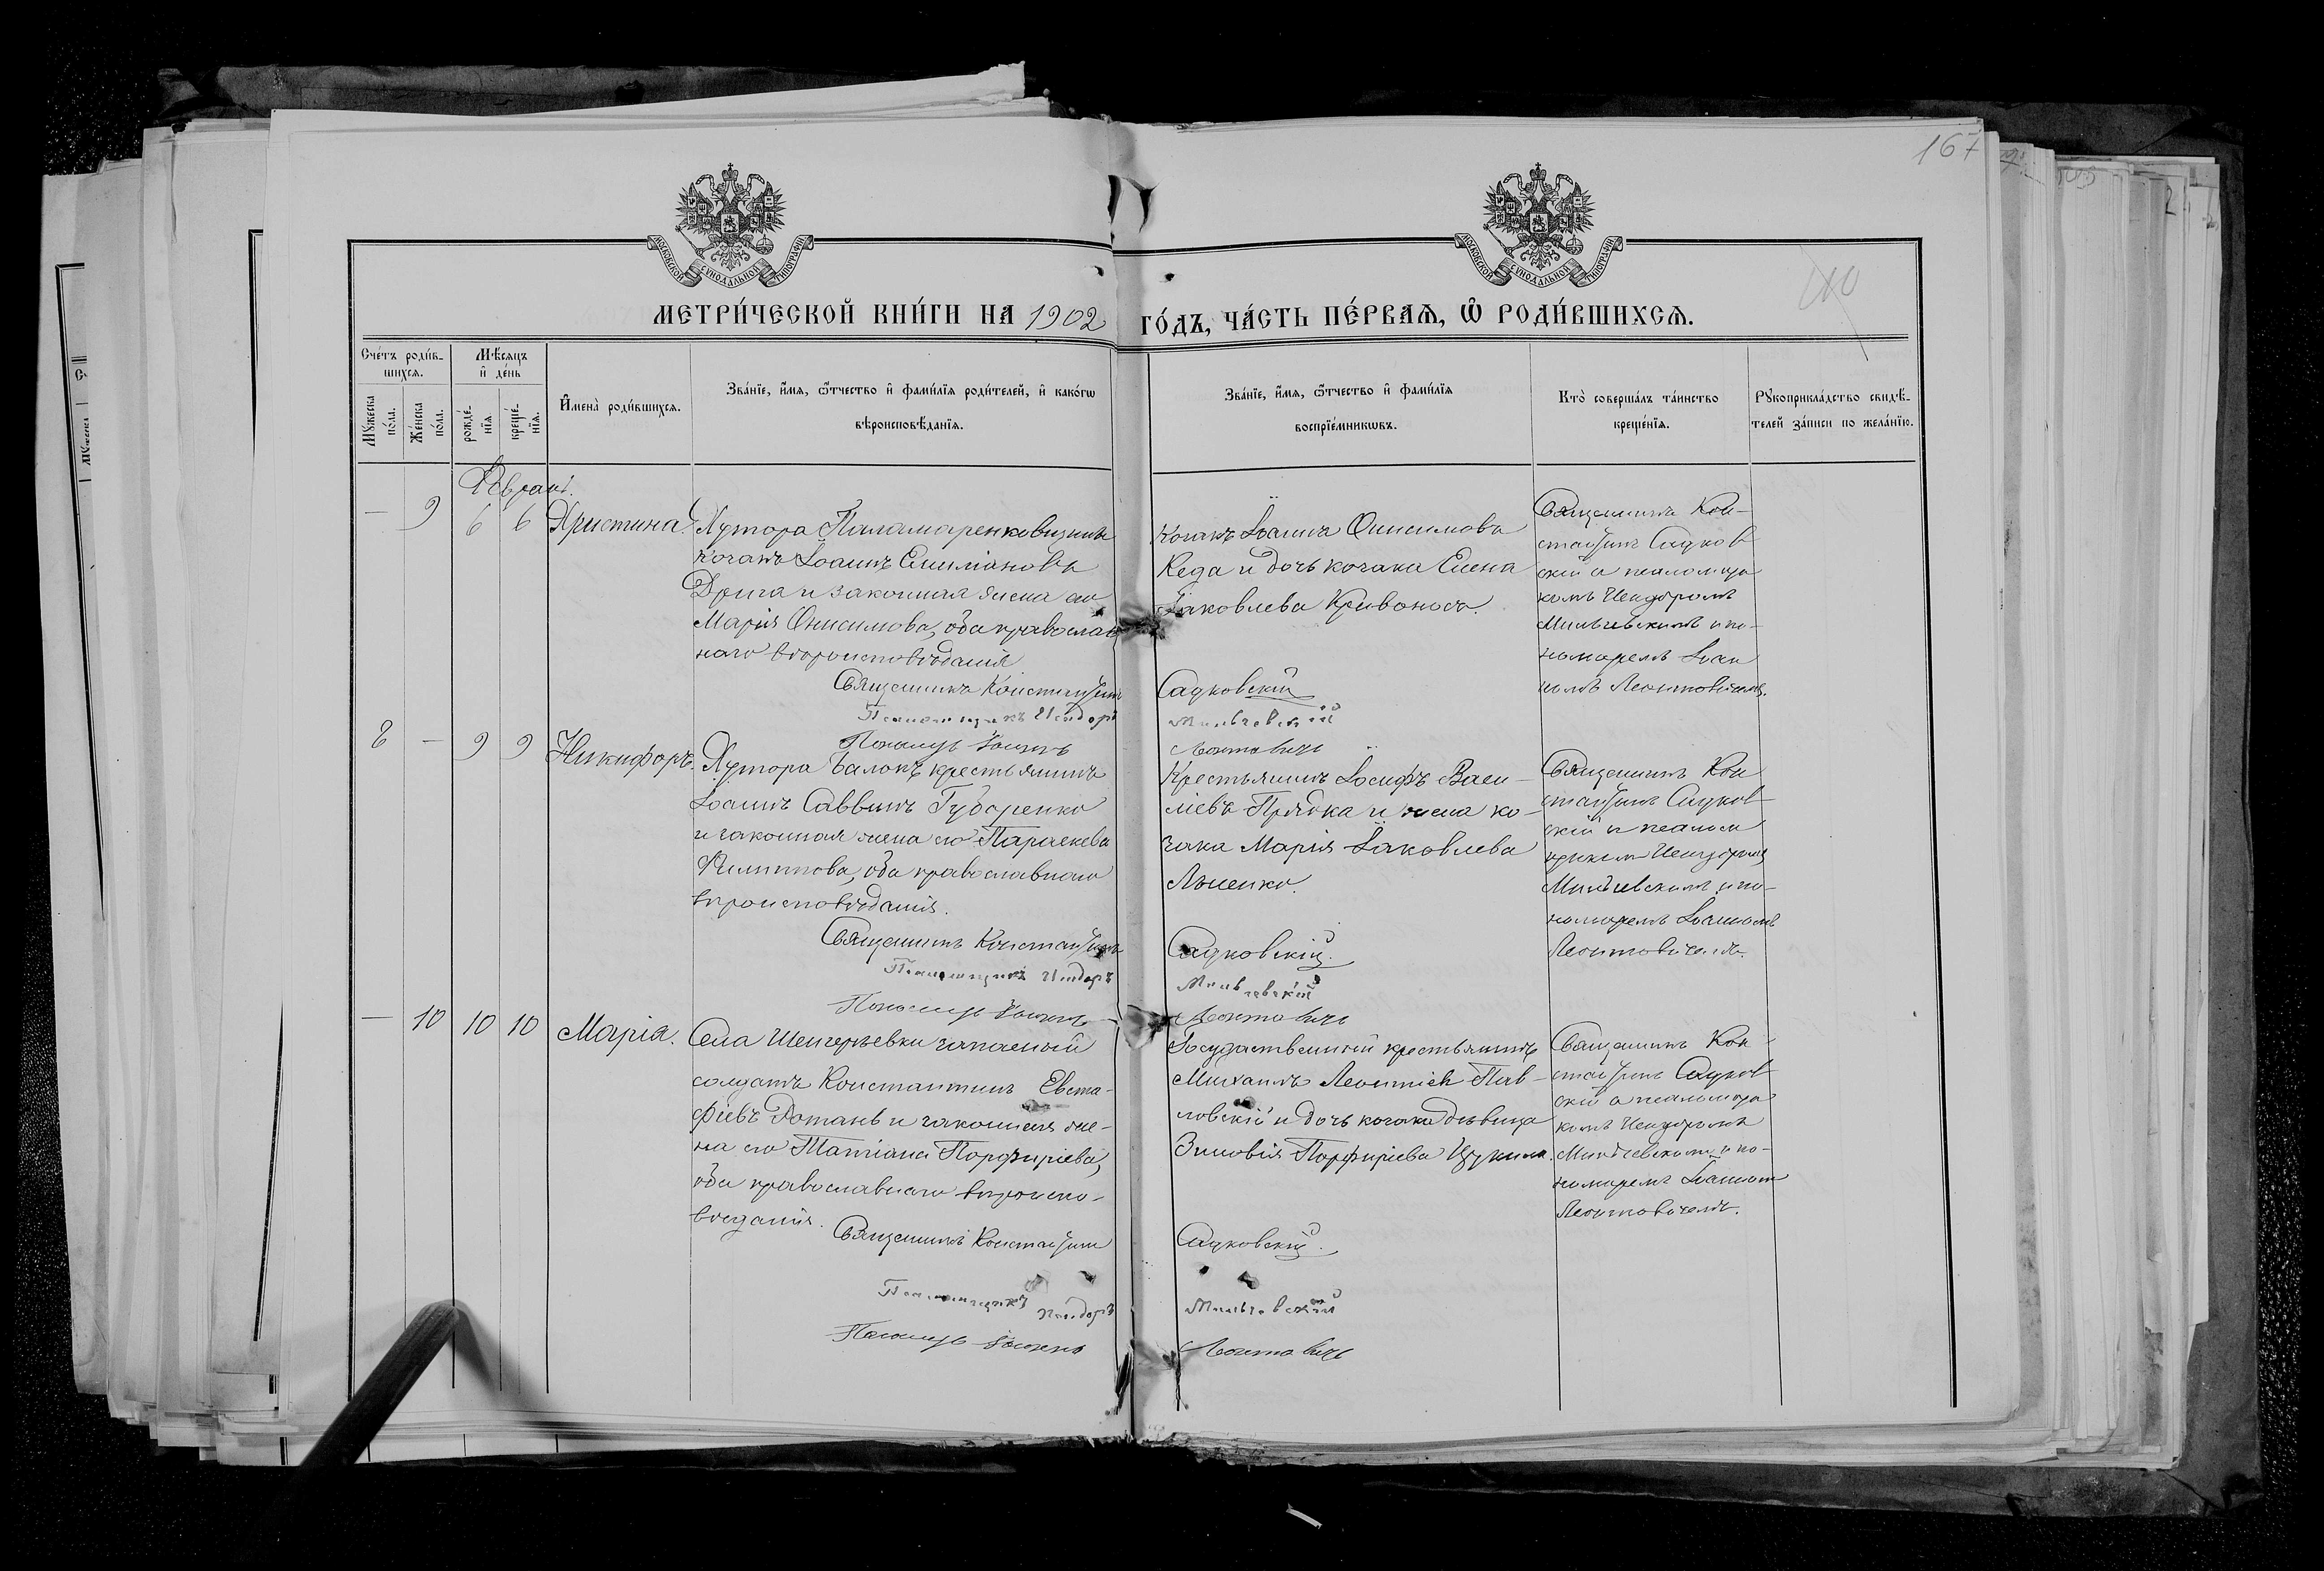 167
110
МОСКОВСКОЙ СѴНОДАЛЬНОЙ ТИПОГРАФІИ
МОСКОВСКОЙ СѴНОДАЛЬНОЙ ТИПОГРАФІИ
МЕТРИ́ЧЕСКОЙ КНИ́ГИ НА 1902 ГО́ДЪ, ЧА́СТЬ ПЕ́РВАѦ, Ѽ РОДИ́ВШИХСѦ.
Сче́тъ роди́в-
шихсѧ.
Мꙋ́жеска по́ла.
Же́нска по́ла.
Мѣ́сѧцъ
и҆ де́нь
рожде́-
нїѧ
креще́-
нїѧ.
И҆мена̀ роди́вшихсѧ.
Зва́нїе, и҆́мѧ, ѻ҆́тчество и҆ фами́лїѧ роди́телей, и҆ како́гѡ
вѣроисповѣ́данїѧ.
Зва́нїе, и҆́мѧ, ѻ҆́тчество и҆ фами́лїѧ
воспрїе́мникѡвъ.
Кто̀ соверша́лъ та́инство
креще́нїѧ.
Рꙋкоприкла́дство свидѣ́-
телей за́писи по жела́нїю.
— 9 6 6 Христина.
Хутора Паламаренковщины
козакъ Іоаннъ Емиліановъ
Дрига и законная жена его
Марія Онисимова, оба православ
наго вѣроисповѣданія
Священникъ Константинъ
Псаломщикъ Исидоръ
Пономарь Іоаннъ
Козакъ Іоаннъ Онисимовъ
Кеда и дочь козака Елена
Іаковлева Кривоноса.
Садковскій
Мильчевскій
Леонтовичъ
Священникъ Кон-
стантинъ Садков
скій съ псаломщи
комъ Исидоромъ
Мильчевскимъ и по-
номаремъ Іоан
номъ Леонтовичемъ.
8 — 9 9 Никифоръ.
Хутора Балокъ крестьянинъ
Іоаннъ Саввинъ Губаренко
и законная жена его Параскева
Филиппова, оба православнаго
вѣроисповѣданія.
Священникъ Константинъ
Псаломщикъ Исидоръ
Пономарь Іоаннъ
Крестьянинъ Іосифъ Васи-
ліевъ Прядка и жена ко-
зака Марія Іаковлева
Садковскій.
Мильчевскій
Леонтовичъ
Священникъ Кон
стантинъ Садков
скій съ псалом
щикомъ Исидоромъ
Мильчевскимъ и по-
номаремъ Іоанномъ
Леонтовичемъ.
— 10 10 10 Марія.
Села Шенгерѣевки запасный
солдатъ Константинъ Евста-
фіевъ Дотань и законная же-
на его Татіана Порфиріева,
оба православнаго вѣроиспо-
вѣданія.
Священникъ Константинъ
Псаломщикъ Исидоръ
Пономарь Іоаннъ
Государственный крестьянинъ
Михаилъ Леонтіевъ Пав-
ловскій и дочь козака дѣвица
Зиновія Порфиріева
Садковскій.
Мильчевскій
Леонтовичъ
Священникъ Кон
стантинъ Садков
скій съ псаломщи
комъ Исидоромъ
Мильчевскимъ и по-
номаремъ Іоанномъ
Леонтовичемъ.